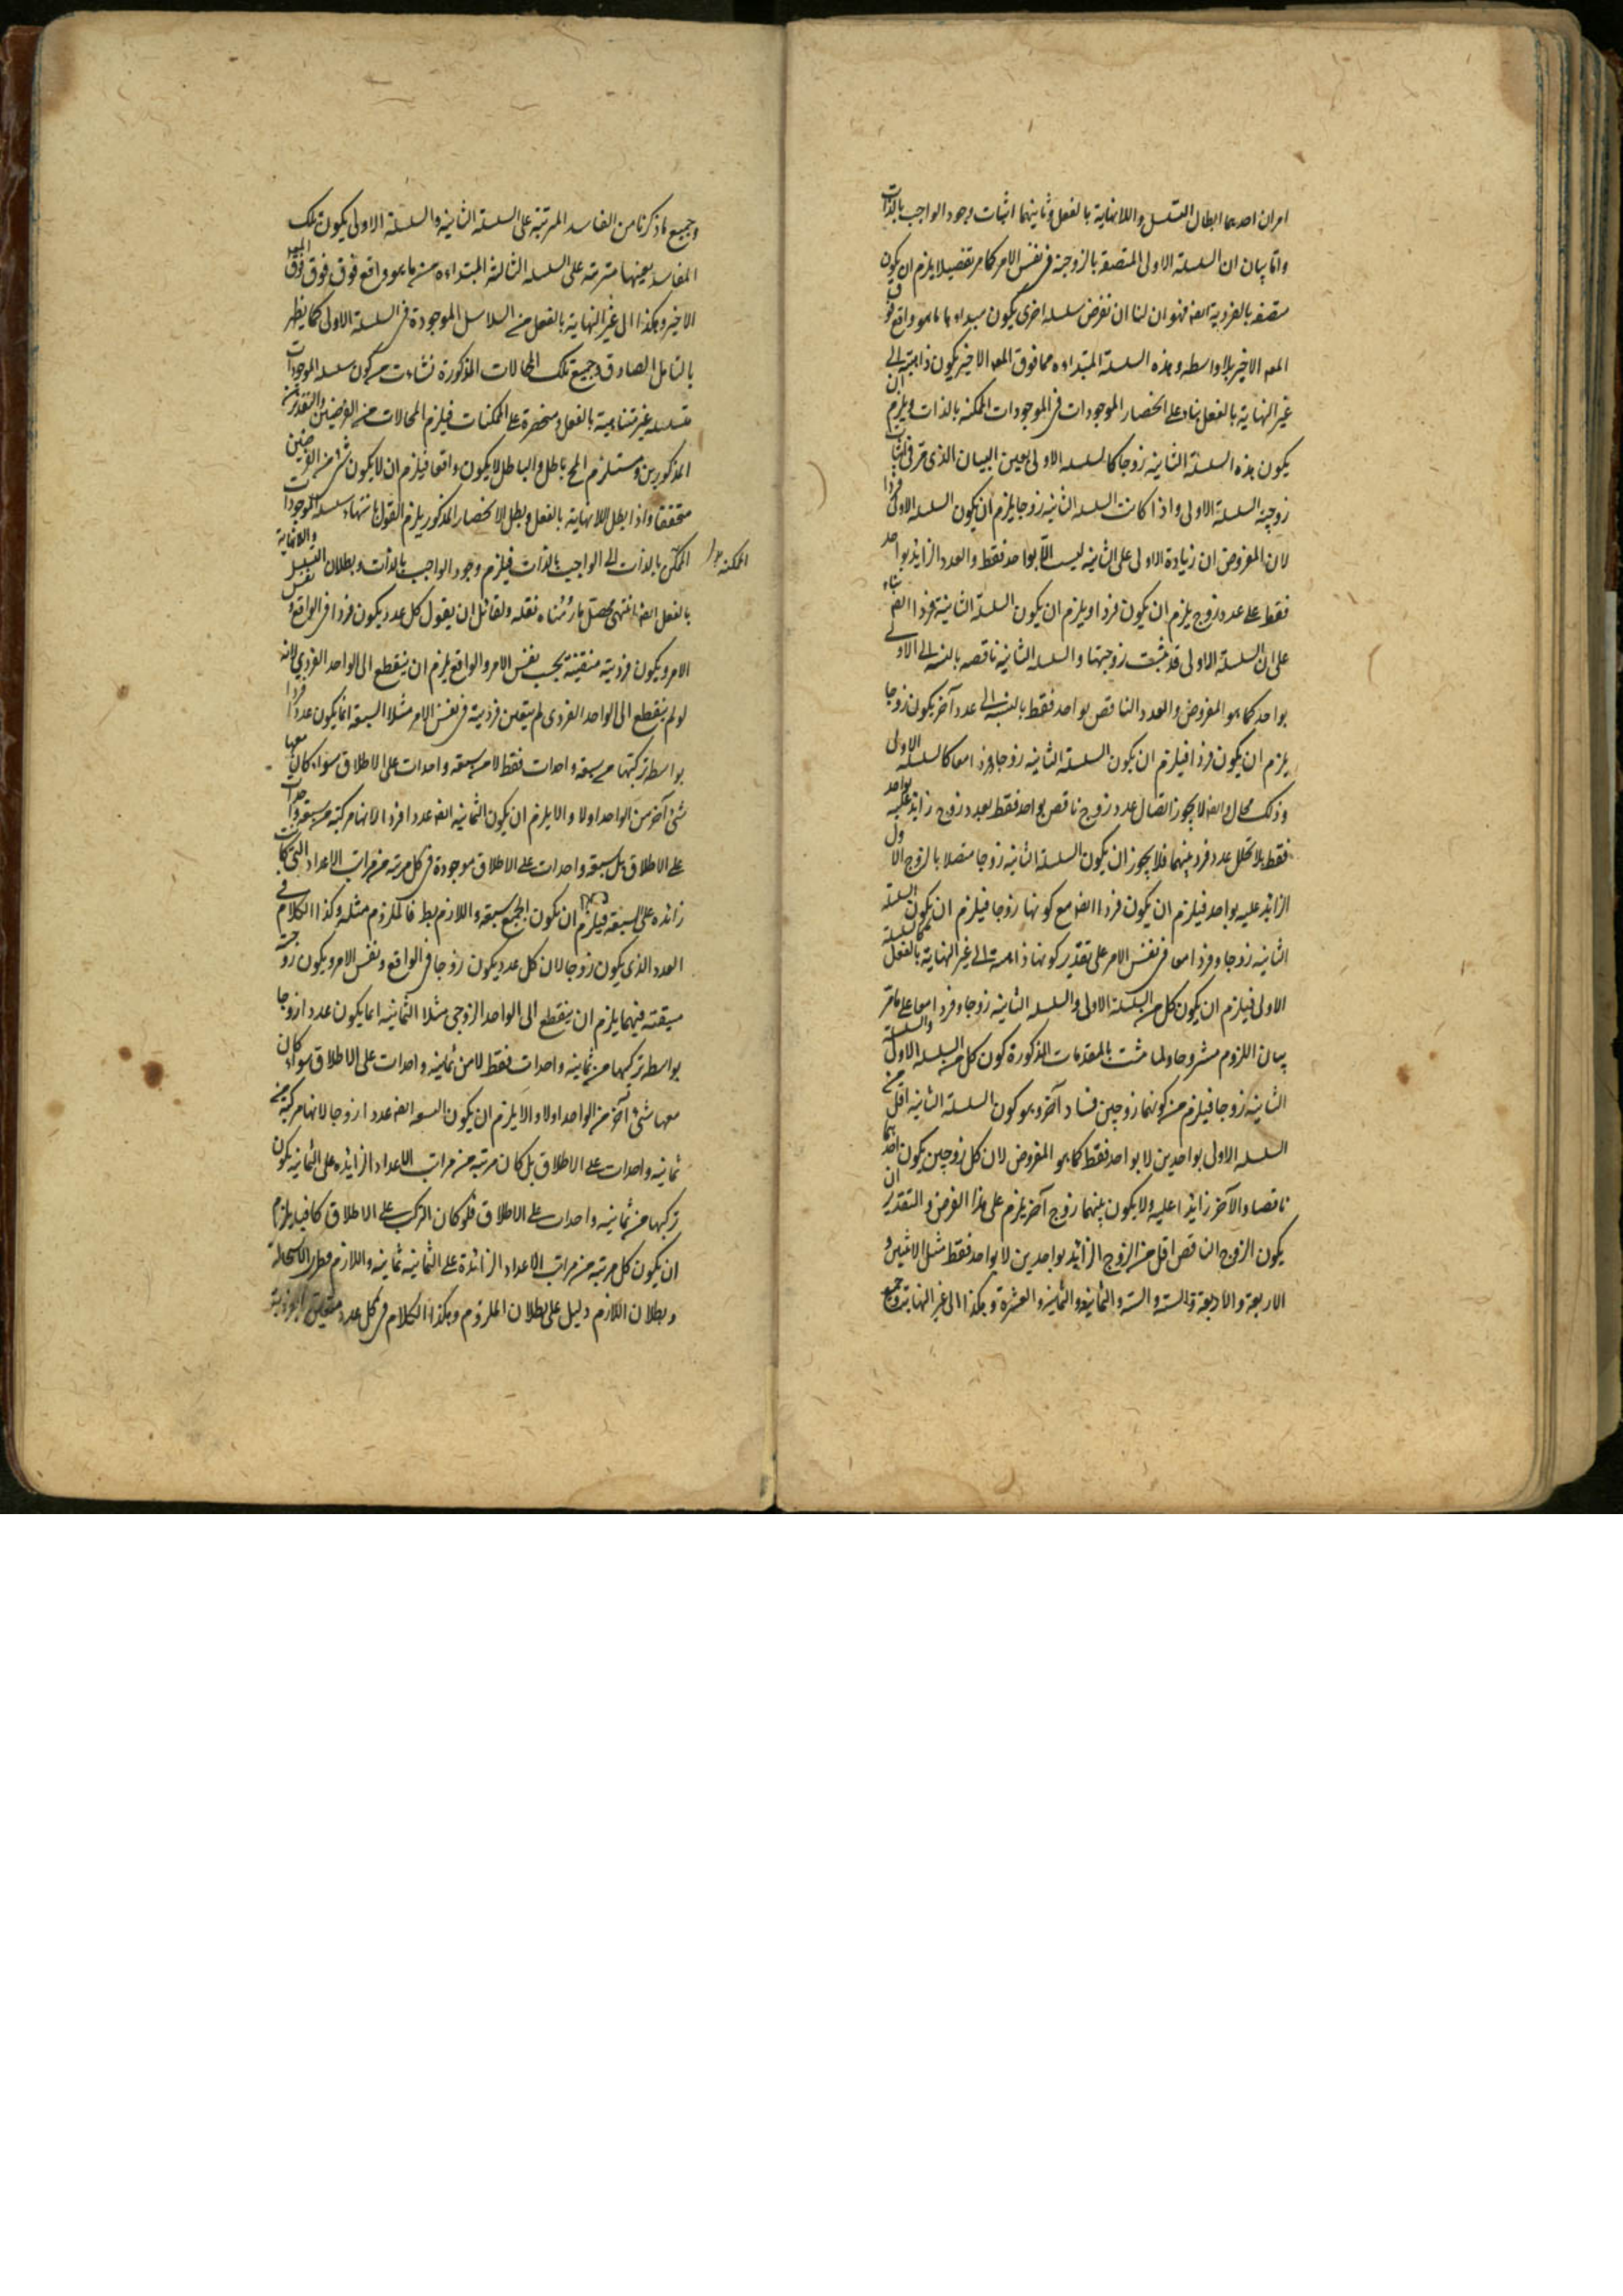 امران احدهما ابطال التسلسل واللانهاية بالفعل وثانيهما اثبات وجود الواجب بالذات
واما بيان ان السلسلة الاولى المتصفة بالزوجية في نفس الامر كما مر تفصيلا يلزم ان يكون
متصفة بالفردية ايضا فهو ان لنا ان نفرض سلسلة اخرى يكون مبداءها ما هو واقع فوق
المعه الاخير بلا واسطه وهذه السلسلة المبتداءه مما فوق المعه الاخير يكون ذاهبة الى
غير النهاية بالفعل بناء على انحصار الموجودات في الموجودات الممكنة بالذات ويلزم ان
يكون هذه السلسلة الثانيه زوجا كالسلسله الاولى بعين البيان الذى مر في اثبات
زوجية السلسلة الاولى واذا كانت السلسله الثانيه زوجا يلزم ان يكون السلسله الاولى فردا
لان المفروض ان زيادة الاولى على الثانيه ليست الا بواحد فقط والعدد الزايد بواحد
فقط على عدد زوج يلزم ان يكون فردا ويلزم ان يكون السلسلة الثانية فردا ايضا بناء
على ان السلسلة الاولى قد ثبتت زوجيتها والسلسله الثانيه ناقصه بالنسبه الى الاولى
بواحد كما هو المفروض والعدد الناقص بواحد فقط بالنسبه الى عدد آخر يكون زوجا
يلزم ان يكون فردا فيلزم ان يكون السلسلة الثانيه زوجا وفردا معا كالسلسله الاولى
وذلك محال وايضا لا يجوز اتصال عدد زوج ناقص بواحد فقط بعدد زوج زايد عليه بواحد
فقط بلا تخلل عدد فرد بينهما فلا يجوز ان يكون السلسلة الثانيه زوجا متصلا بالزوج الاول
الزايد عليه بواحد فيلزم ان يكون فردا ايضا مع كونها زوجا فيلزم ان يكون السلسلة
الثانيه زوجا وفردا معا في نفس الامر على تقدير كونها ذاهبة الى غير النهاية بالفعل كالسلسلة
الاولى فيلزم ان يكون كل من السلسلة الاولى والسلسله الثانيه زوجا وفردا معا على ما مر
بيان اللزوم مشروحا ولما ثبت بالمقدمات المذكورة كون كل من السلسله الاولى والسلسلة
الثانيه زوجا فيلزم من كونهما زوجين فساد آخر وهو كون السلسلة الثانيه اقل من
السلسله الاولى بواحدين لا بواحد فقط كما هو المفروض لان كل زوجين يكون احدهما
ناقصا والآخر زايدا عليه ولا يكون بينهما زوج آخر يلزم على هذا الفرض والتقدير ان
يكون الزوج الناقص اقل من الزوج الزايد بواحدين لا بواحد فقط مثل الاثنين و
الاربعة والاربعة والستة والستة والثمانية والثمانيه والعشرة وهكذا الى غير النهاية وجميع
وجميع ما ذكرنا من المفاسد المترتبة على السلسلة الثانيه والسلسلة الاولى يكون تلك
المفاسد بعينها مترتبه على السلسله الثالثة المبتداءه من ما هو واقع فوق فوق المعه
الاخير وهكذا الى غير النهاية بالفعل من السلاسل الموجودة في السلسلة الاولى كما يظهر
بالتامل الصادق وجميع تلك المحالات المذكورة نشاءت من كون سلسله الموجودات
متسلسله غير متناهية بالفعل ومنحصرة على الممكنات فيلزم المحالات من الفرضين والتقديرين
المذكورين ومستلزم المح باطل والباطل لا يكون واقعا فيلزم ان لا يكون شئ من الفرضين
متحققا واذا بطل اللانهاية بالفعل وبطل الانحصار المذكور يلزم القول بانتهاء سلسلة الموجودات
الممكنه
الممكن بالذات الى الواجب بالذات فيلزم وجود الواجب بالذات وبطلان التسلسل واللانهاية
بالفعل ايضا انتهى محصل ما رئناه نقله ولقائل ان يقول كل عدد يكون فردا في الواقع ونفس
الامر ويكون فرديته متقينة بحسب نفس الامر والواقع يلزم ان ينقطع الى الواحد الفردي لانه
لو لم ينقطع الى الواحد الفردى لم يتعين فرديته في نفس الامر مثلا السبعة انما يكون عددا فردا
بواسطه تركبها من سبعه واحدات فقط لا من سبعه واحدات على الاطلاق سواء كان معها
شئ آخر من الواحد اولا والا يلزم ان يكون الثمانيه ايضا عددا فردا لانها مركبة من سبعه واحدات
على الاطلاق بل سبعه واحدات على الاطلاق موجودة في كل مرتبه من مراتب الاعداد التي كانت
زائده على السبعة فيلزم ان يكون الجميع سبعه واللازم بط فالملزوم مثله وكذا الكلام في
العدد الذى يكون زوجا لان كل عدد يكون زوجا في الواقع ونفس الامر ويكون زوجيته
متيقنه فيهما يلزم ان ينقطع الى الواحد الزوجي مثلا الثمانيه انما يكون عددا زوجا
بواسطه تركبها من ثمانيه واحدات فقط لا من ثمانيه واحدات على الاطلاق سواء كان
معها شئ آخر من الواحد اولا والا يلزم ان يكون التسعه ايضا عددا زوجا لانها مركبة من
ثمانيه واحدات على الاطلاق بل كان مرتبه من مراتب الاعداد الزايده على الثمانيه يكون
تركبها من ثمانيه واحدات على الاطلاق فلو كان التركب على الاطلاق كافيا يلزم
ان يكون كل مرتبه من مراتب الاعداد الزائدة على الثمانيه ثمانيه واللازم الاستحالة
وبطلان اللازم دليل على بطلان الملزوم وهكذا الكلام في كل عدد